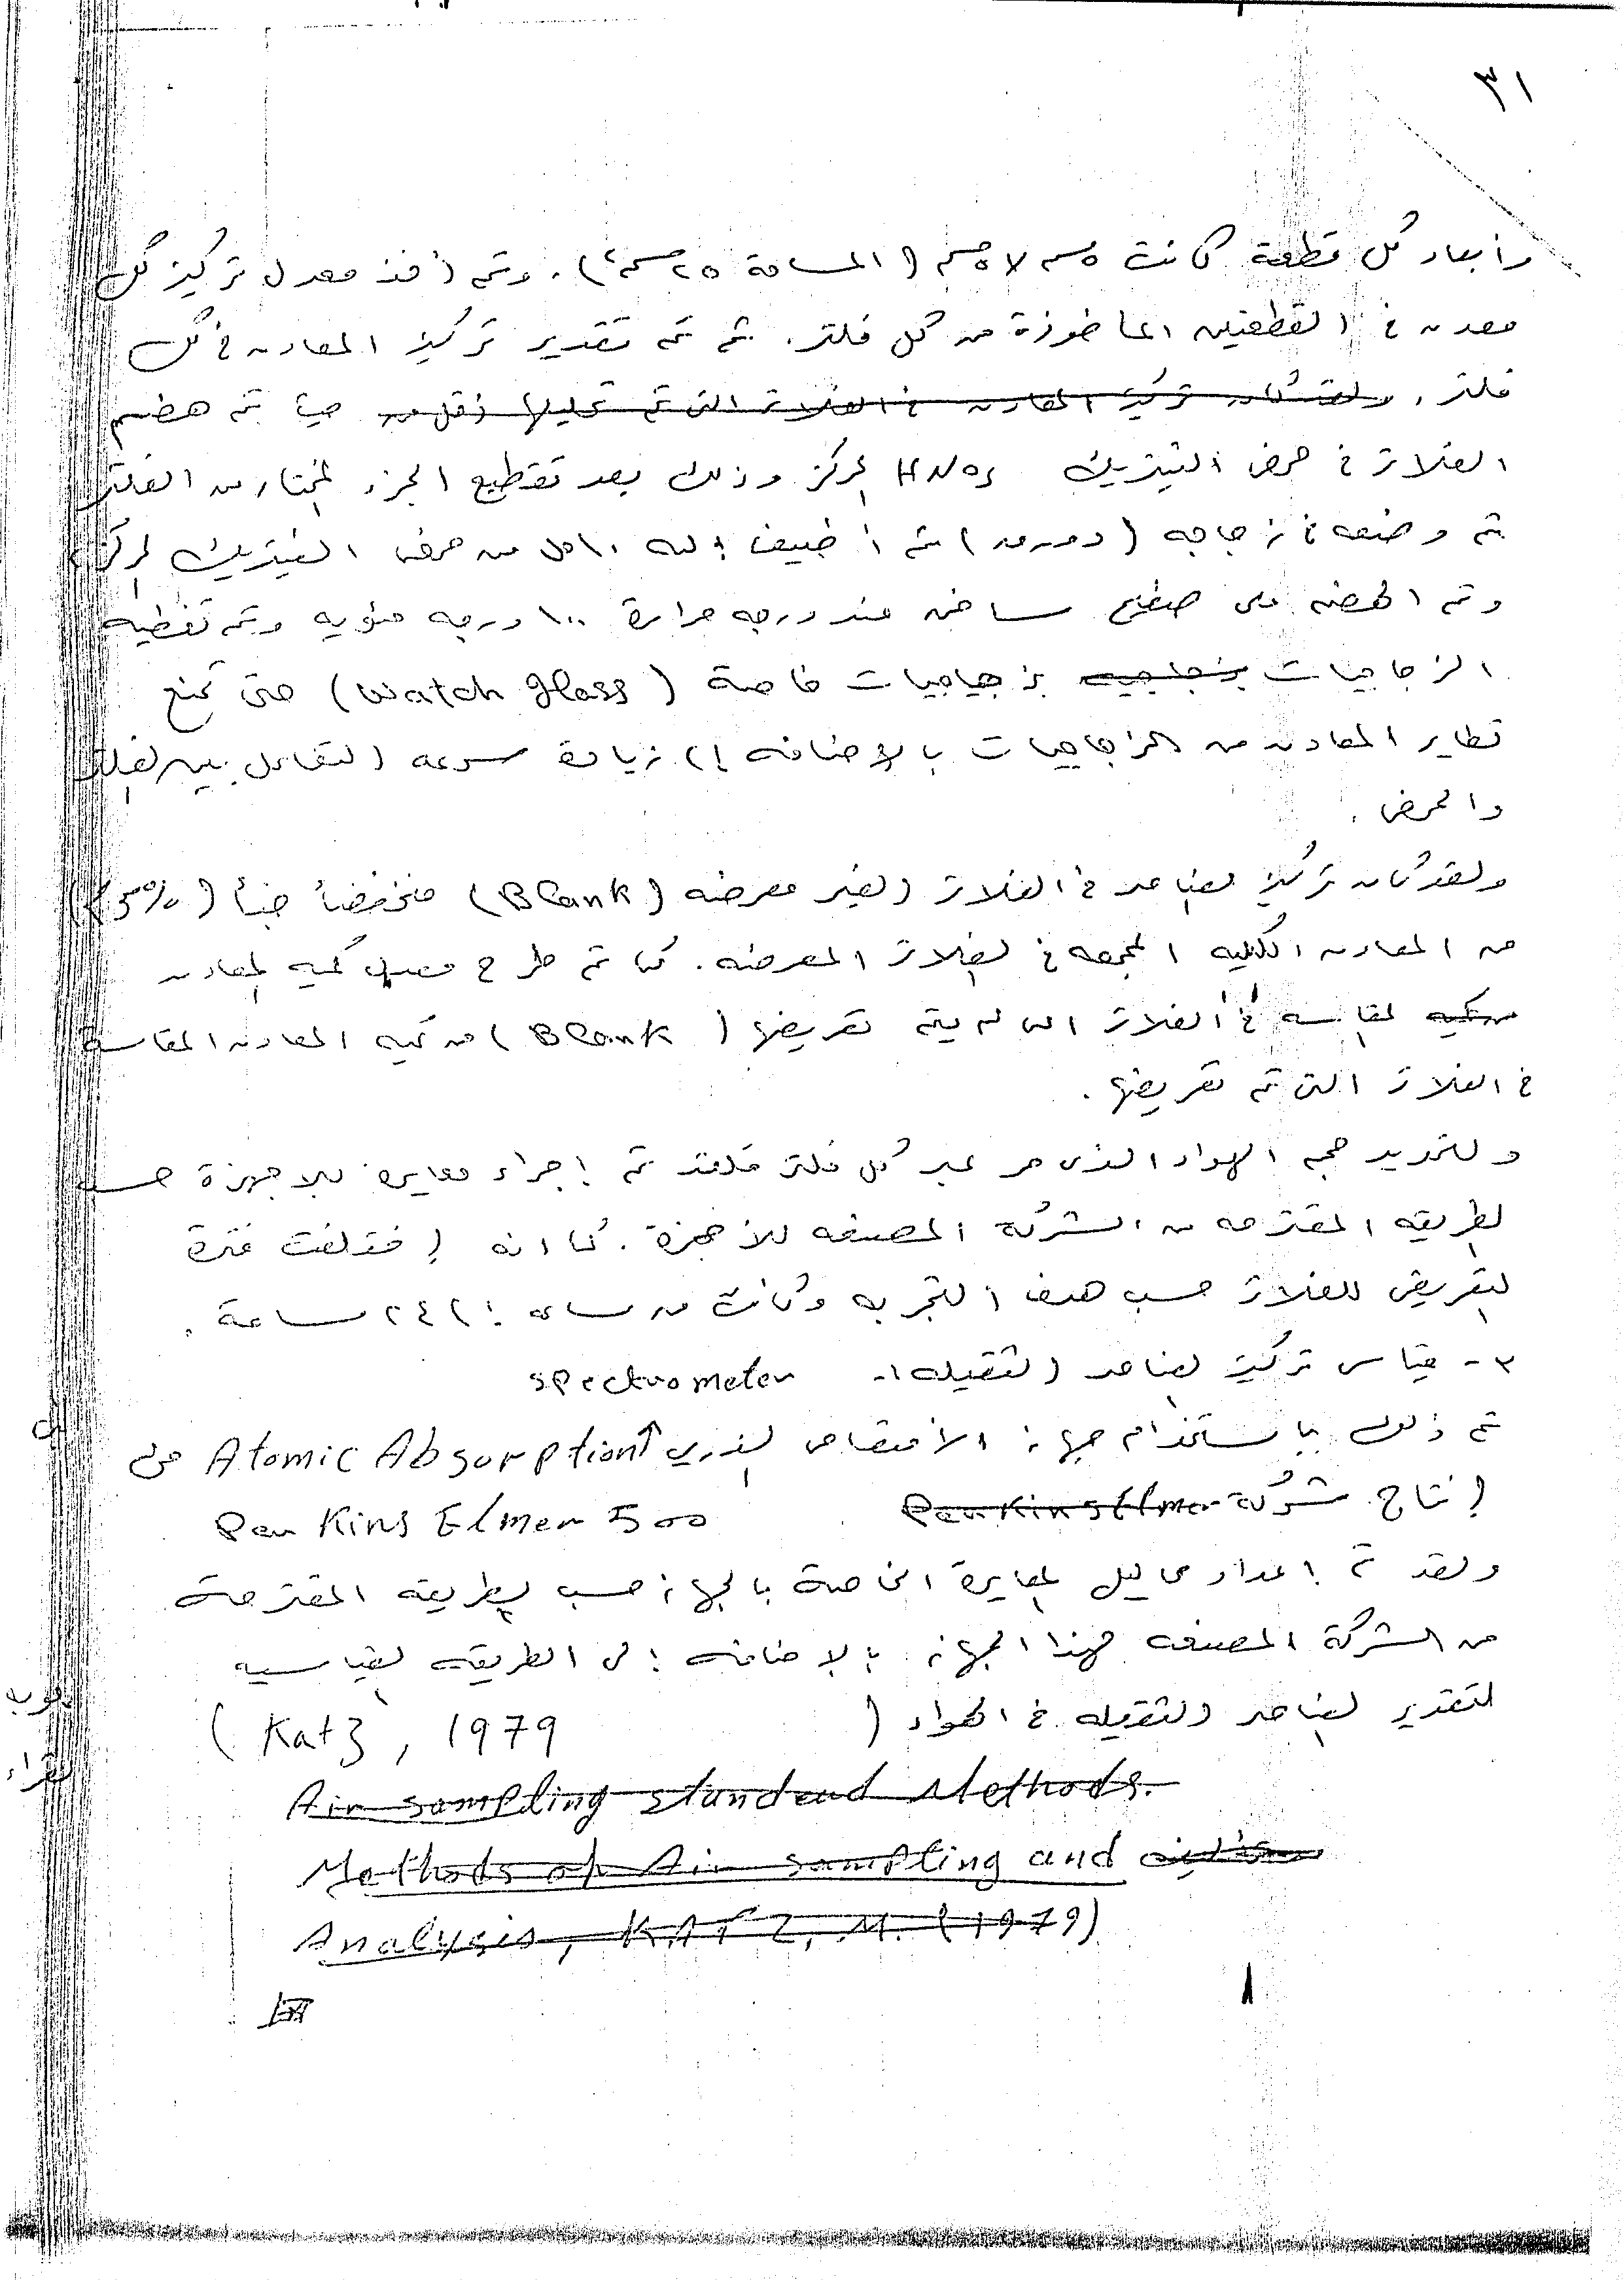 ٣١
وأبعاد كل قطعة كانت ٥سم X ٥سم (المساحة ٢٥ سم٢). وتم أخذ معدل تركيز كل
معدن في القطعتين المأخوذة من كل فلتر. ثم تم تقدير تركيز المعادن في كل
فلتر. ولقد كان تركيز المعادن في الفلاتر التي تم تحليلها حيث تم هضم
الفلاتر في حمض النيتريك HNO3 المركز وذلك بعد تقطيع الجزء المختار من الفلتر
ثم وضعه في زجاجه (دورق) ثم أضيف إليه ١٠ مل من حمض النيتريك المركز
وتم الهضم على صفيح ساخن عند درجه حرارة ١٠٠ درجه مئويه وتم تغطيه
الزجاجيات بزجاجيات خاصة (Watch glass) حتى تمنع
تطاير المعادن من الزجاجيات بالإضافه إلى زيادة سرعه التفاعل بين الفلتر
والحمض.
ولقد كان تركيز العناصر في الفلاتر الغير معرضه (Blank) منخفضاً جداً (٣%)
من المعادن الكليه المجمعه في الفلاتر المعرضه. كما تم طرح معدل كميه المعادن
المقاسه في الفلاتر التى لم يتم تعريضها (Blank) من كميه المعادن المقاسه
في الفلاتر التى تم تعريضها.
ولتحديد حجم الهواء الذى مر عبر كل فلتر فلقد تم إجراء معايرة للاجهزة حسب
الطريقه المقترحه من الشركه المصنعه للأجهزة. كما انه إختلفت فترة
التعريض للفلاتر حسب هدف التجربه وكانت من ساعه إلى ٢٤ ساعة.
٣- قياس تركيز العناصر الثقيله:- spectrometer
تم ذلك باستخدام جهاز الامتصاص الذري Atomic Absorption من
إنتاج شركة Perkins Elmer
Perkins Elmer 500
ولقد تم إعداد محاليل المعايرة الخاصة بالجهاز حسب الطريقه المقترحة
من الشركة المصنعه لهذا الجهاز بالإضافه إلى الطريقه القياسيه
لتقدير العناصر الثقيله في الهواء (Katz, 1979)
Air sampling standard Methods.
Methods of Air sampling and
Analysis, KATZ, M. (1979)